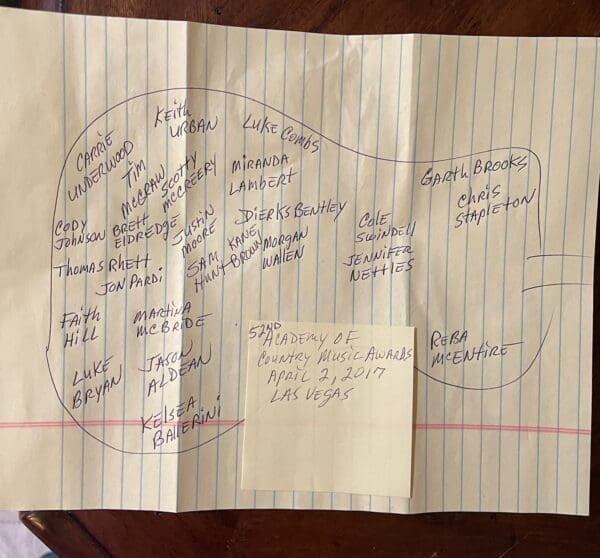 CARRIE
UNDERWOOD
Keith
URBAN
LUKE Combs
TIM
McGRAW
Scotty
McCREERY
MIRANDA
LAMBERT
GARTH BROOKS
Chris
STAPLETON
Cody
Johnson
BRETT
ELDREDGE
Justin
Moore
Dierks Bentley
Cole
Swindell
Thomas Rhett
Jon Pardi
SAM
HUNT
KANE
BROWN
MORGAN
WALLEN
Jennifer
Nettles
FAITH
HILL
MARTINA
McBRIDE
LUKE
BRYAN
JASON
ALDEAN
KELSEA
BALLERINI
REBA
McENTIRE
52ND
ACADEMY OF
Country Music AWARDS
APRIL 2, 2017
LAS VEGAS